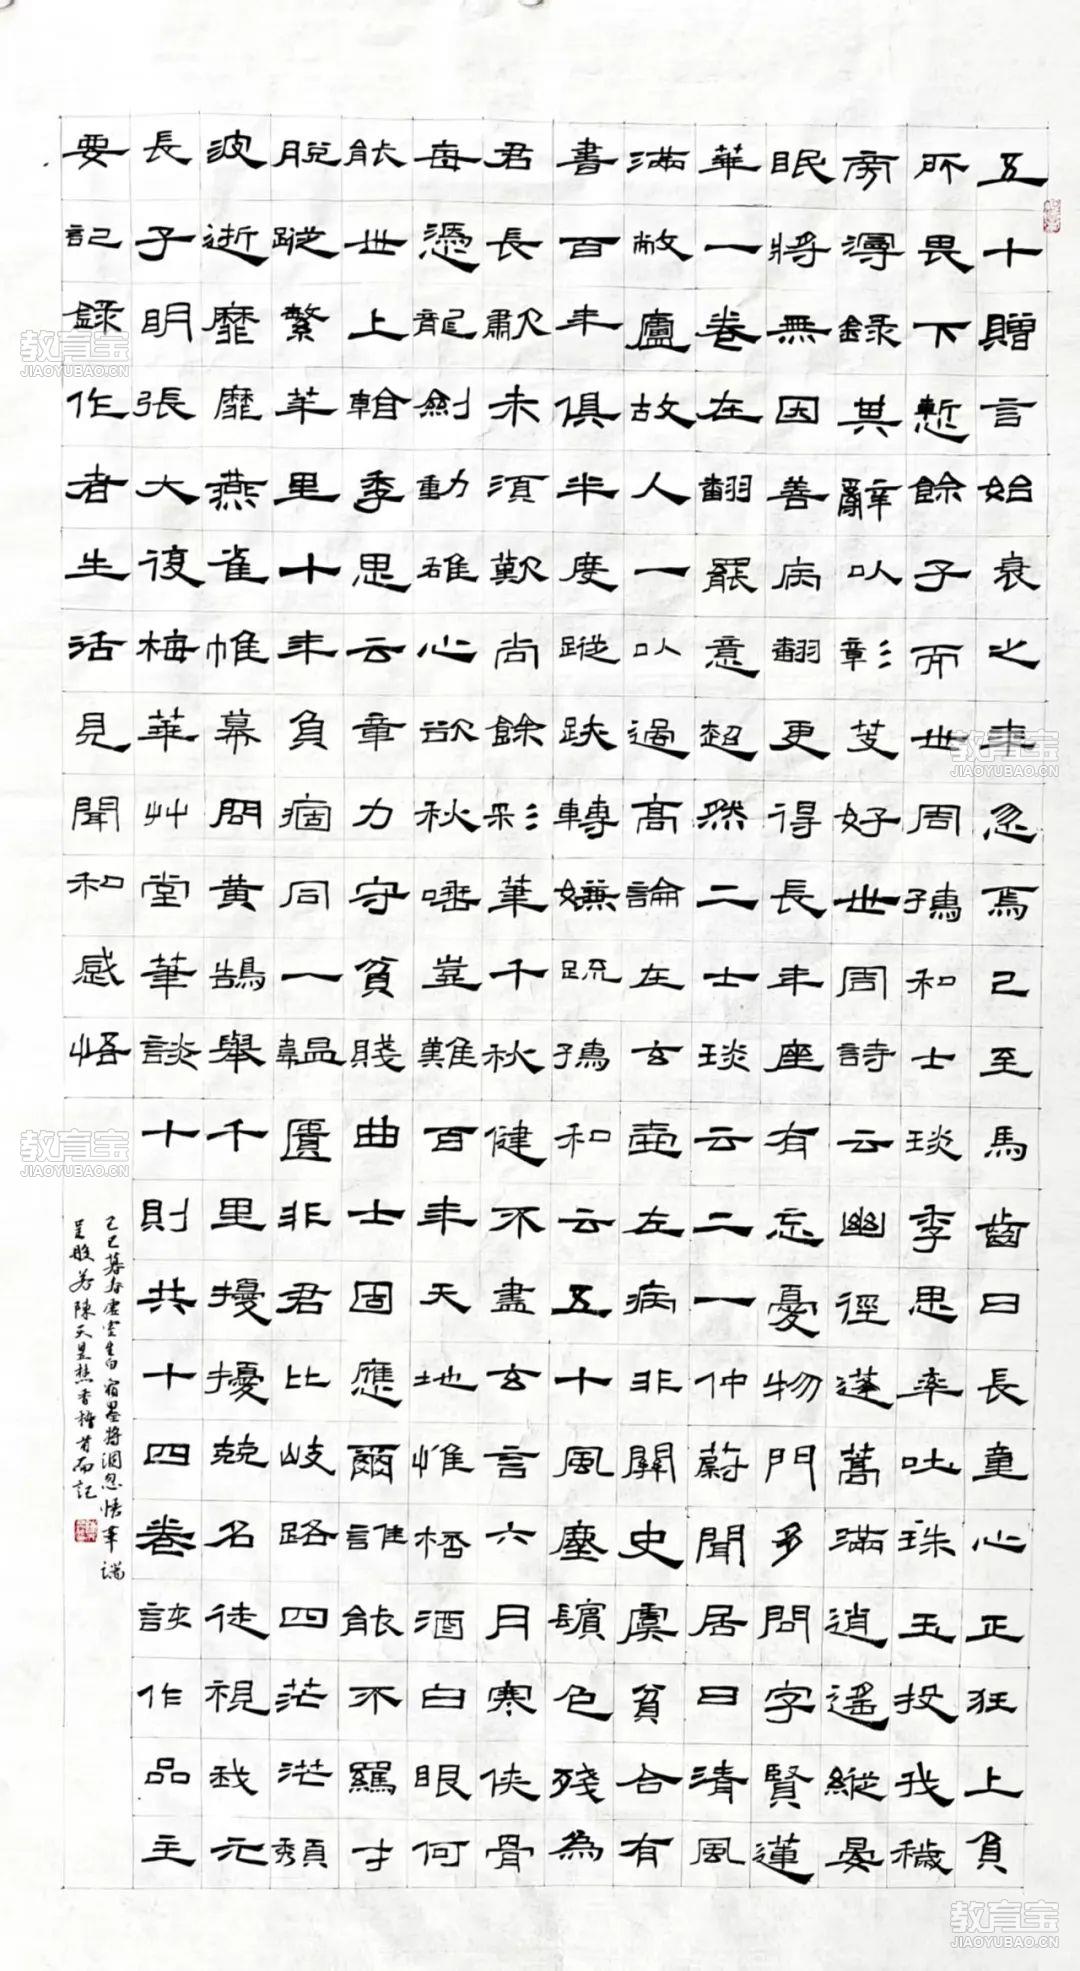 五十贈言始衰之年忽焉已至馬齒日長童心正狂上負
所畏下慙餘子而世周孺和士琰季思率吐珠玉投我穢
旁溥錄其辭以彰芰好世周詩云幽徑蓬蒿滿逍遙縱晏
眠將無因善病翻更得長年座有忘憂物門多問字賢蓮
華一卷在翻罷意超然二士琰云二一仲蔚聞居日清風
滿敝廬故人一以過高論在玄壺左病非關史虞貧合有
書百年俱半度蹤跌轉嫌疏孺和云五十風塵鬢色殘為
君長歎未須歎尚餘彩筆千秋健不盡玄言六月寒俠骨
每憑龍劍動雄心欲秋唾豈難百年天地惟桮酒白眼何
能世上輸季思云章力守貧賤曲士固應爾誰能不羈才
脫蹤繁華里十年負痼同一韞匵非君比岐路四茫茫頹
波逝靡靡燕雀帷幕閒黃鵠舉千里擾擾兢名徒視我元
長子明張大復梅華艸堂筆談十則共十四卷該作品主
要記錄作者生活見聞和感悟